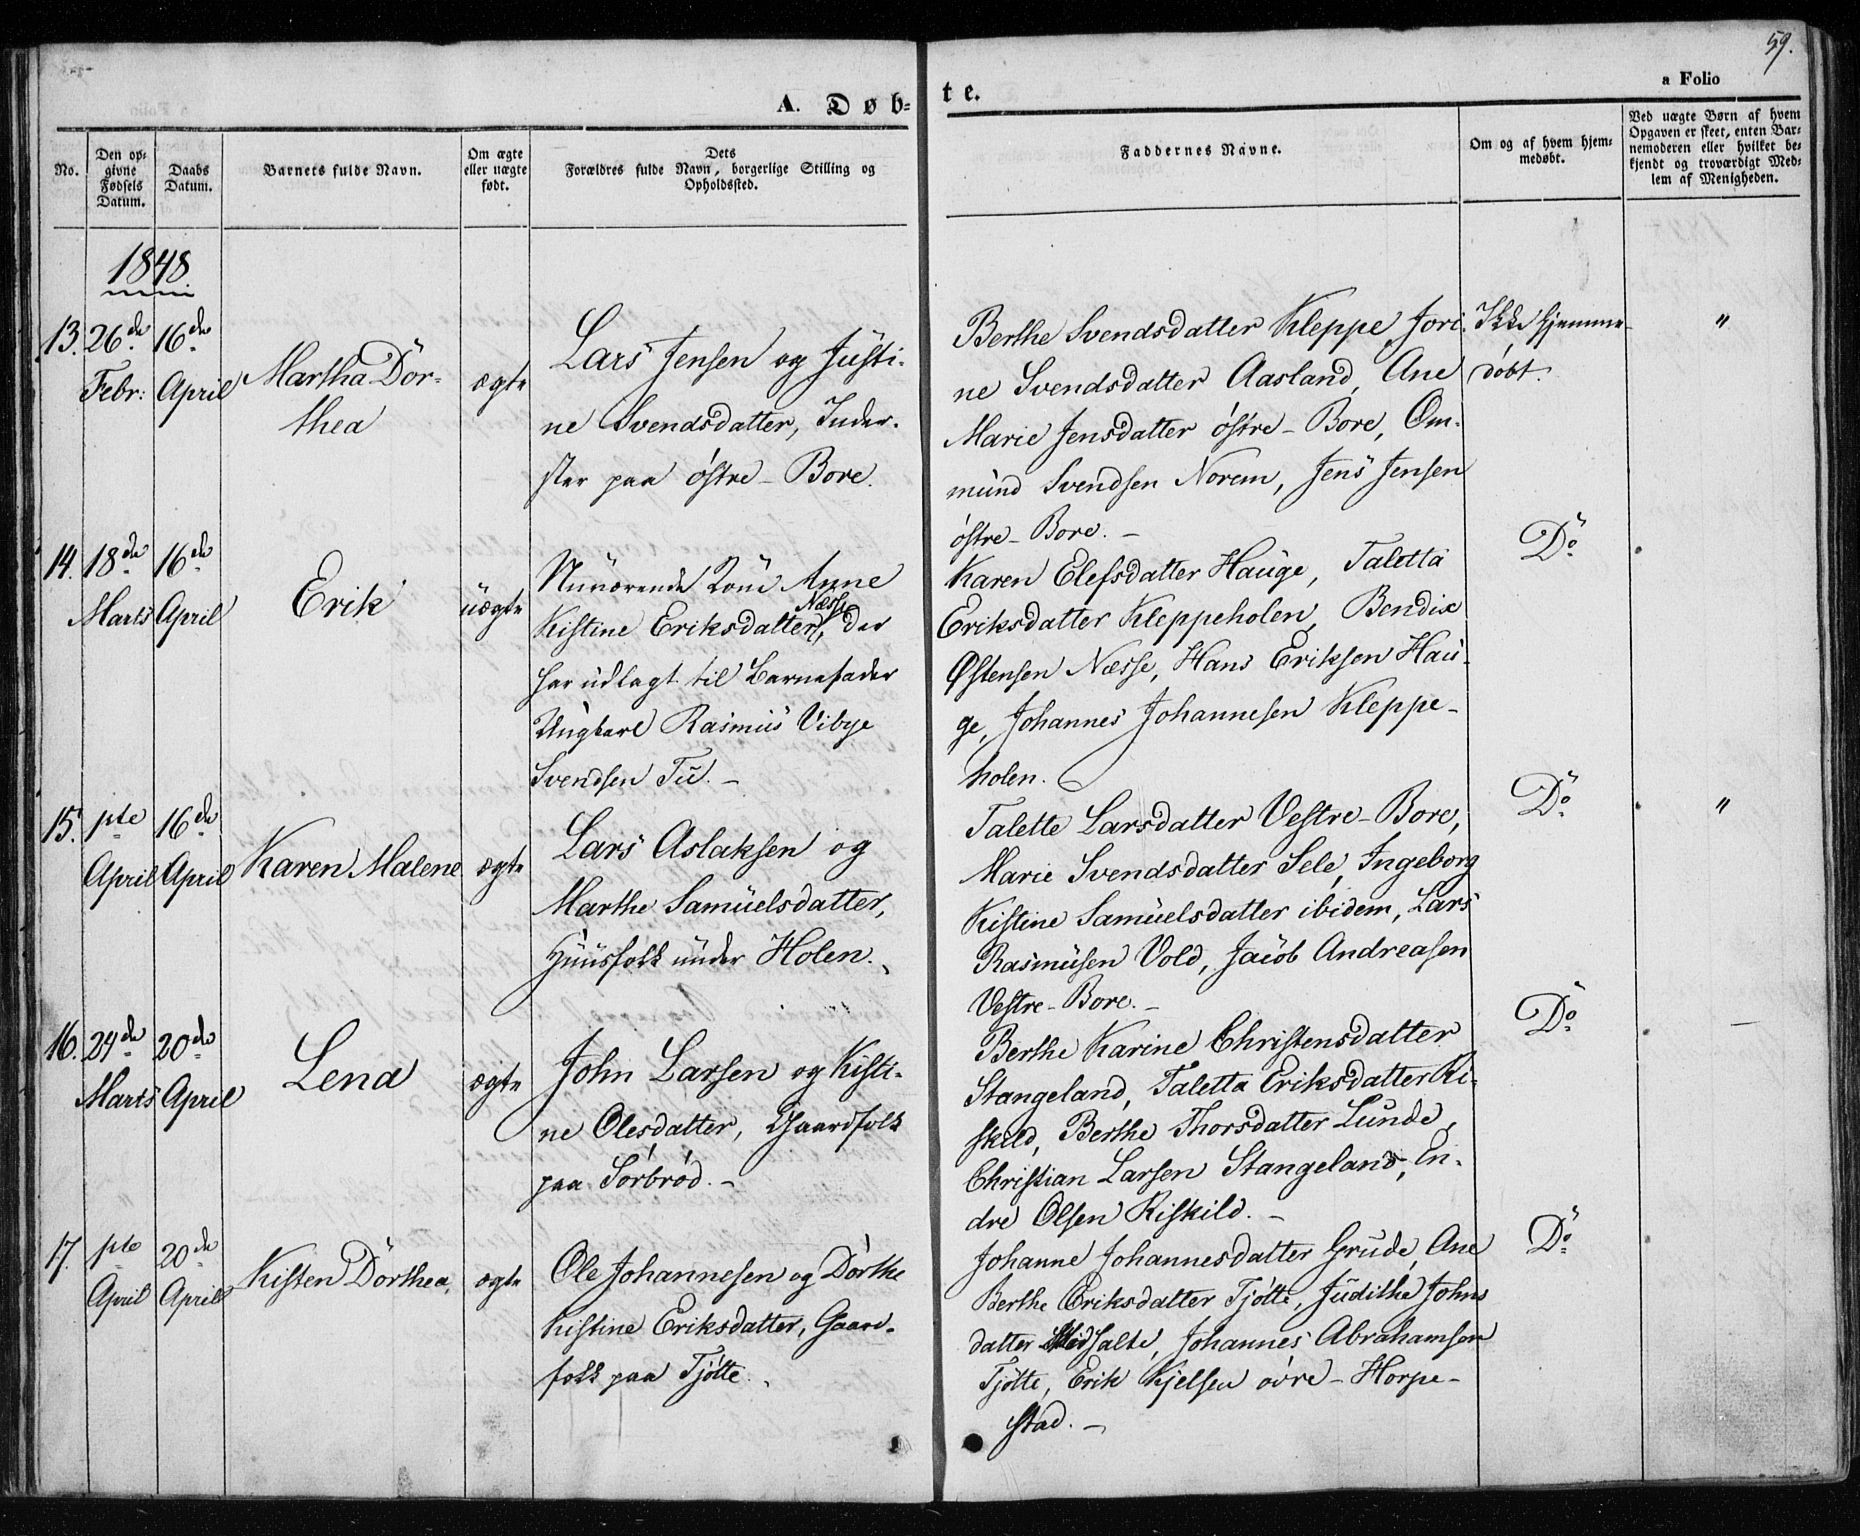 59.
a Folio
A. Døb-
te.
No.
Den op-
givne
Fødsels
Datum.
Daabs
Datum.
Barnets fulde Navn.
Om ægte
eller uægte
født.
Dets
Forældres fulde Navn, borgerlige Stilling og
Opholdssted.
Faddernes Navne.
Om og af hvem hjem-
medøbt.
Ved uægte Børn af hvem
Opgaven er skeet, enten Bar-
nemoderen eller hvilket be-
kjendt og troværdigt Med-
lem af Menigheden.
1848.
13.
26de
Febr:
16de
April
Martha Dör-
thea
ægte
Lars Jensen og Justi-
ne Svendsdatter, Inder-
ster paa östre-Bore.
Berthe Svendsdatter Kleppe, Jori-
ne Svendsdatter Aasland, Ane
Marie Jensdatter östre-Bore, Om-
mund Svendsen Norem, Jens Jensen
östre-Bore. -
Ikke hjemme-
döbt.
"
14.
18de
Marts
16de
April
Erik
uægte
Nuværende Kone Anne
Kistine Eriksdatter Næsse, der
har udlagt til Barnefader
Ungkarl Rasmus Vibye
Svendsen Tu. -
Karen Elefsdatter Hauge, Taletta
Eriksdatter Kleppeholen, Bendix
Østensen Næsse, Hans Eriksen Hau-
ge, Johannes Johannesen Kleppe-
holen.
Do
15.
1ste
April
16de
April
Karen Malene
ægte
Lars Aslaksen og
Marthe Samuelsdatter,
Huusfolk under Holen.
Talette Larsdatter Vestre-Bore,
Marie Svendsdatter Sele, Ingeborg
Kistine Samuelsdatter ibidem, Lars
Rasmusen Vold, Jacob Andreasen
Vestre-Bore. -
Do
"
16.
24de
Marts
20de
April
Lena
ægte
John Larsen og Kisti-
ne Olesdatter, Gaardfolk
paa Sörbröd. -
Berthe Karine Christensdatter
Stangeland, Taletta Eriksdatter Ri-
skild, Berthe Thorsdatter Lunde,
Christian Larsen Stangeland, En-
dre Olsen Riskild. -
Do
-
17.
1ste
April
20de
April
Kisten Dörthea,
ægte
Ole Johannesen og Dörthe
Kistine Eriksdatter, Gaard-
folk paa Tjötte.
Johanne Johannesdatter Grude, Ane
Berthe Eriksdatter Tjötte, Judithe Johns
datter Midsalte, Johannes Abrahamsen
Tjötte, Erik Kjelsen övre-Horpe-
stad. -
Do